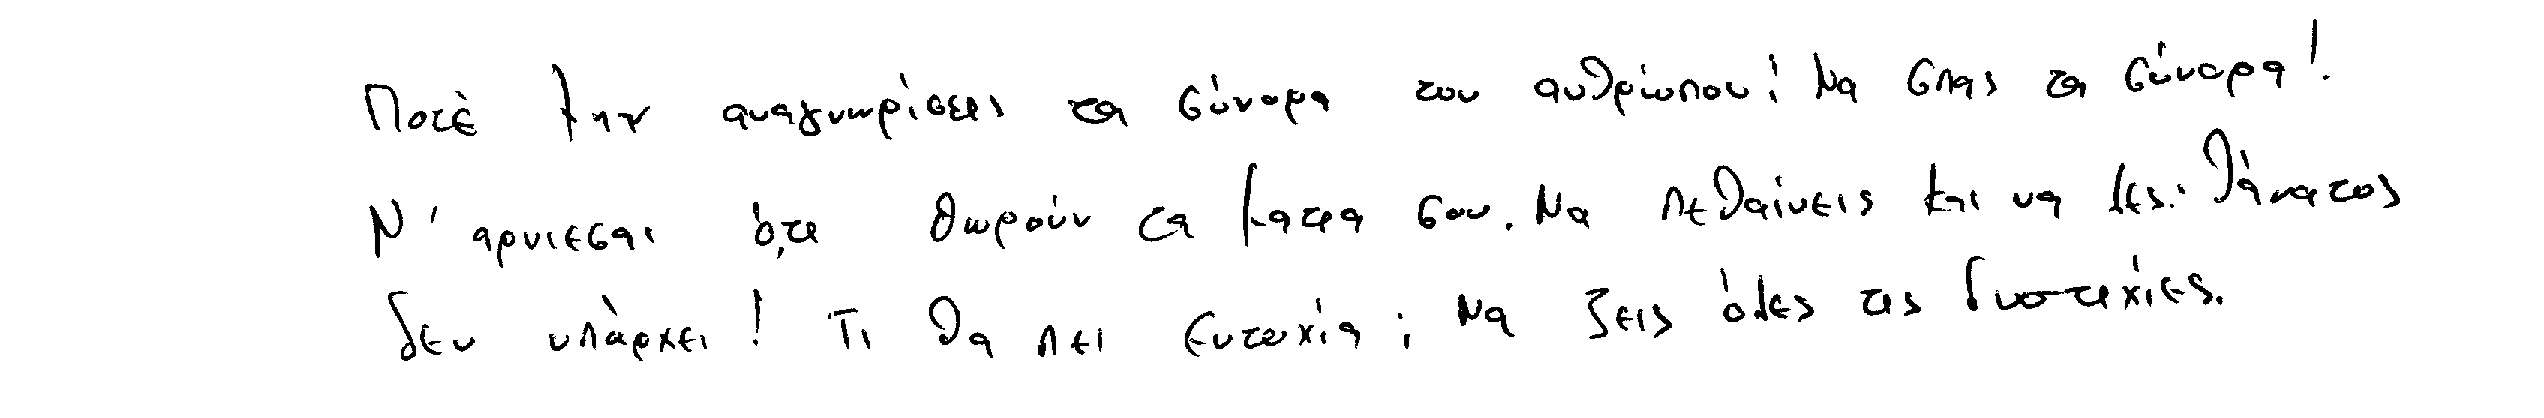 Ποτέ μην αναγνωρίσεις τα σύνορα του ανθρώπου! Να σπας τα σύνορα!
Ν' αρνιεσαι ό,τι θωρούν τα ματια σου. Να πεθαίνεις και να λες: Θάνατος
δεν υπάρχει! Τι θα πει ευτυχία; Να ζεις όλες τις δυστυχίες.